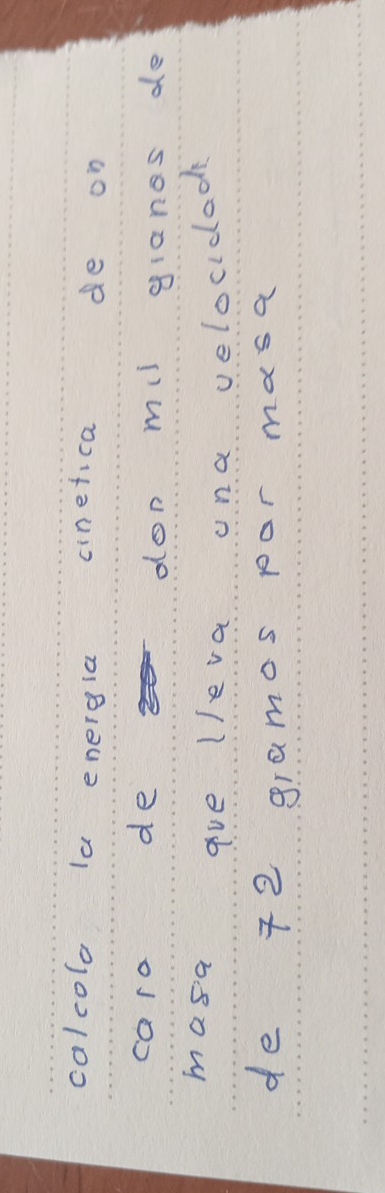 calcola la energia cinetica de on
caro de don mil gianos de
masa que lleva una velocidad
de 72 giamos por masa